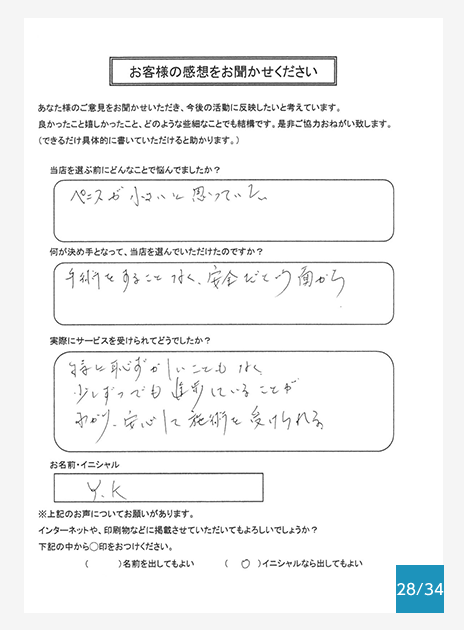 お客様の感想をお聞かせください
あなた様のご意見をお聞かせいただき、今後の活動に反映したいと考えています。
良かったこと嬉しかったこと、どのような些細なことでも結構です。是非ご協力おねがい致します。
(できるだけ具体的に書いていただけると助かります。)
当店を選ぶ前にどんなことで悩んでましたか？
ペニスが小さいと思っていた。
何が決め手となって、当店を選んでいただけたのですか？
手術をすることなく、安全だという面から
実際にサービスを受けられてどうでしたか？
特に恥ずかしいこともなく
少しずつでも進歩していることが
わかり、安心して施術を受けられる
お名前・イニシャル
Y.K
※上記のお声についてお願いがあります。
インターネットや、印刷物などに掲載させていただいてもよろしいでしょうか？
下記の中から○印をおつけください。
(　　)名前を出してもよい　(○)イニシャルなら出してもよい
28/34